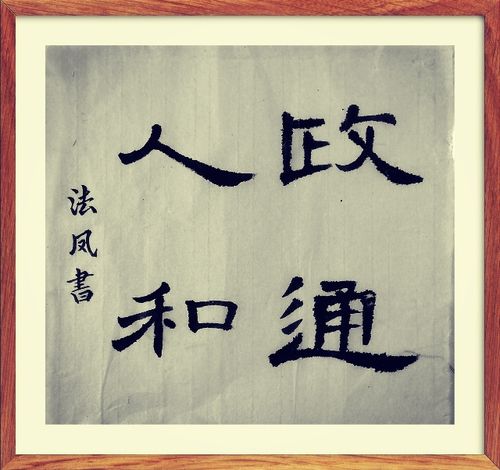 政通
人和
法凤書